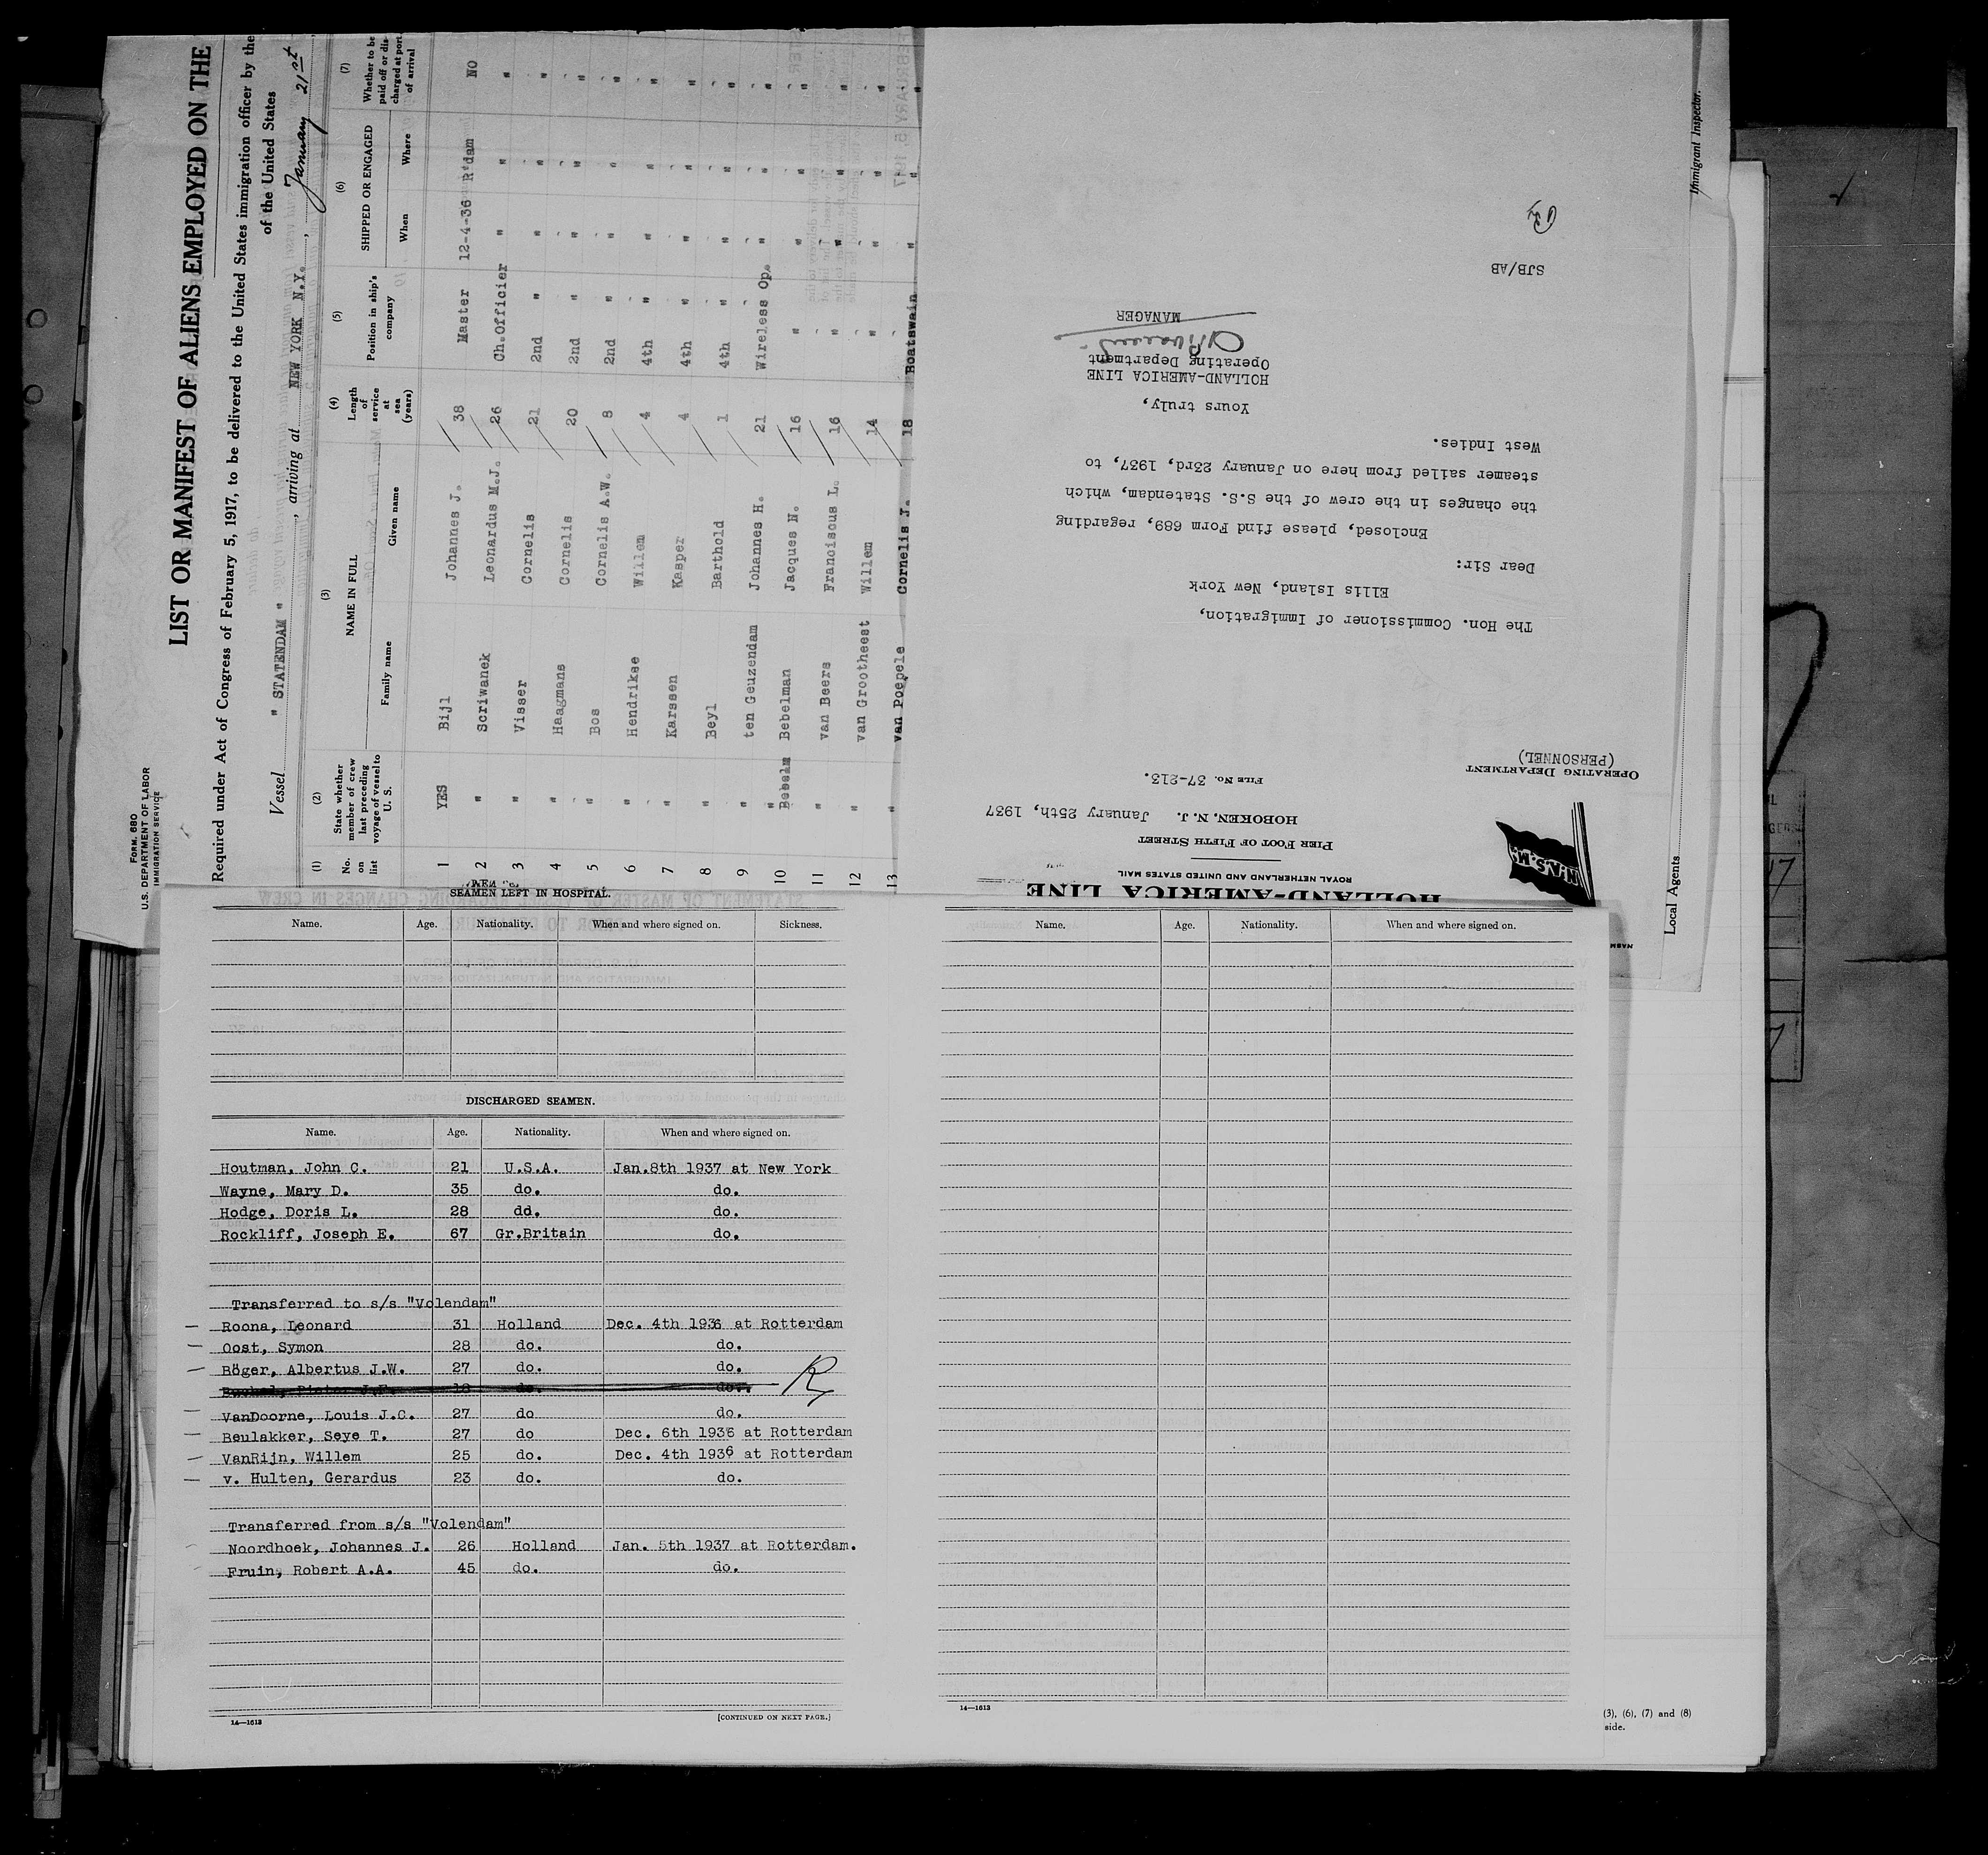 FORM 680
U.S. DEPARTMENT OF LABOR
IMMIGRATION SERVICE
LIST OR MANIFEST OF ALIENS EMPLOYED ON THE
Required under Act of Congress of February 5, 1917, to be delivered to the United States immigration officer by the
of the United States
Vessel " STATENDAM " , arriving at NEW YORK N.Y. , January 21st
(1) (2) (3) (4) (5) (6) (7)
No. on list
State whether member of crew last preceding voyage of vessel to U. S.
NAME IN FULL
Family name Given name
Length of service at sea (years)
Position in ship's company
SHIPPED OR ENGAGED
When Where
Whether to be paid off or discharged at port of arrival
1 YES Bijl Johannes J. 38 Master 12-4-36 R'dam NO
2 " Scriwanek Leonardus M.J. 26 Ch.Officier " " "
3 " Visser Cornelis 21 2nd " " " "
4 " Haagmans Cornelis 20 2nd " " " "
5 " Bos Cornelis A.W. 8 2nd " " " "
6 " Hendrikse Willem 4 4th " " " "
7 " Karssen Kasper 4 4th " " " "
8 " Beyl Barthold 1 4th " " " "
9 " ten Geuzendam Johannes H. 21 Wireless Op. " " "
10 " Bebelman Jacques N. 16 " " " "
11 " van Beers Franciscus L. 16 " " " "
12 " van Grootheest Willem 14 " " " "
13 " van Poepele Cornelis J. 18 Boatswain " " "
HOLLAND-AMERICA LINE
ROYAL NETHERLAND AND UNITED STATES MAIL
PIER FOOT OF FIFTH STREET
HOBOKEN, N. J. January 25th, 1937
N.A.S.M.
OPERATING DEPARTMENT
(PERSONNEL)
FILE No. 37-213.
The Hon. Commissioner of Immigration,
Ellis Island, New York
Dear Sir:
Enclosed, please find Form 689, regarding
the changes in the crew of the S.S. Statendam, which
steamer sailed from here on January 23rd, 1937, to
West Indies.
Yours truly,
HOLLAND-AMERICA LINE
Operating Department
MANAGER
SJB/AB
Immigrant Inspector.
Local Agents
NASM
SEAMEN LEFT IN HOSPITAL.
Name. Age. Nationality. When and where signed on. Sickness.
DISCHARGED SEAMEN.
Name. Age. Nationality. When and where signed on.
Houtman, John C. 21 U.S.A. Jan.8th 1937 at New York
Wayne, Mary D. 35 do. do.
Hodge, Doris L. 28 dd. do.
Rockliff, Joseph E. 67 Gr.Britain do.
Transferred to s/s "Volendam"
Roona, Leonard 31 Holland Dec. 4th 1936 at Rotterdam
Oost, Symon 28 do. do.
Böger, Albertus J.W. 27 do. do.
18 do. do.
VanDoorne, Louis J.C. 27 do do.
Beulakker, Seye T. 27 do Dec. 6th 1936 at Rotterdam
VanRijn, Willem 25 do. Dec. 4th 1936 at Rotterdam
v. Hulten, Gerardus 23 do. do.
Transferred from s/s "Volendam"
Noordhoek, Johannes J. 26 Holland Jan. 5th 1937 at Rotterdam.
Fruin, Robert A.A. 45 do. do.
14—1613
[CONTINUED ON NEXT PAGE.]
Name. Age. Nationality. When and where signed on.
14—1613
(3), (6), (7) and (8)
side.